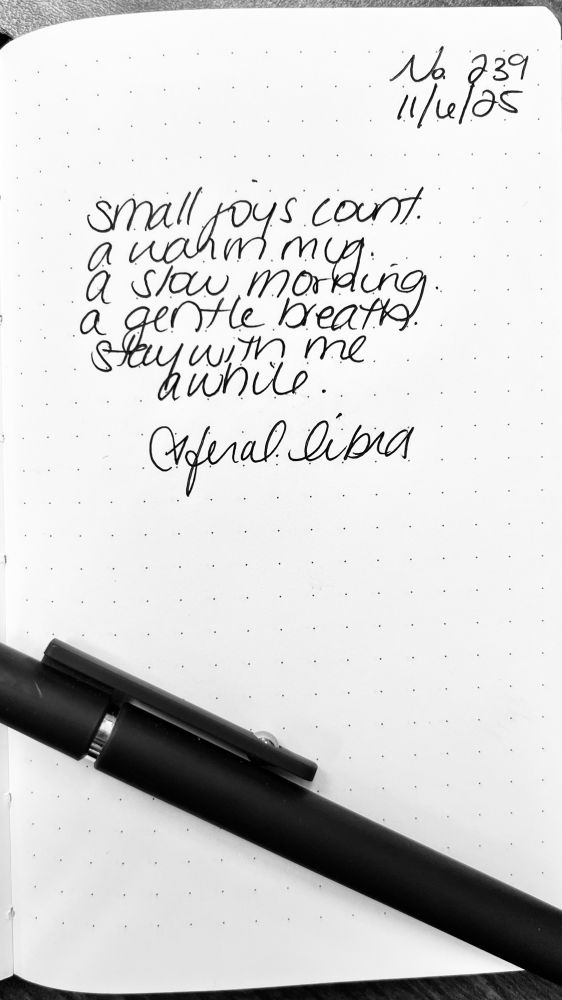 No. 239
11/6/25
small joys count.
a warm mug.
a slow morning.
a gentle breath.
stay with me
awhile.
feral libra